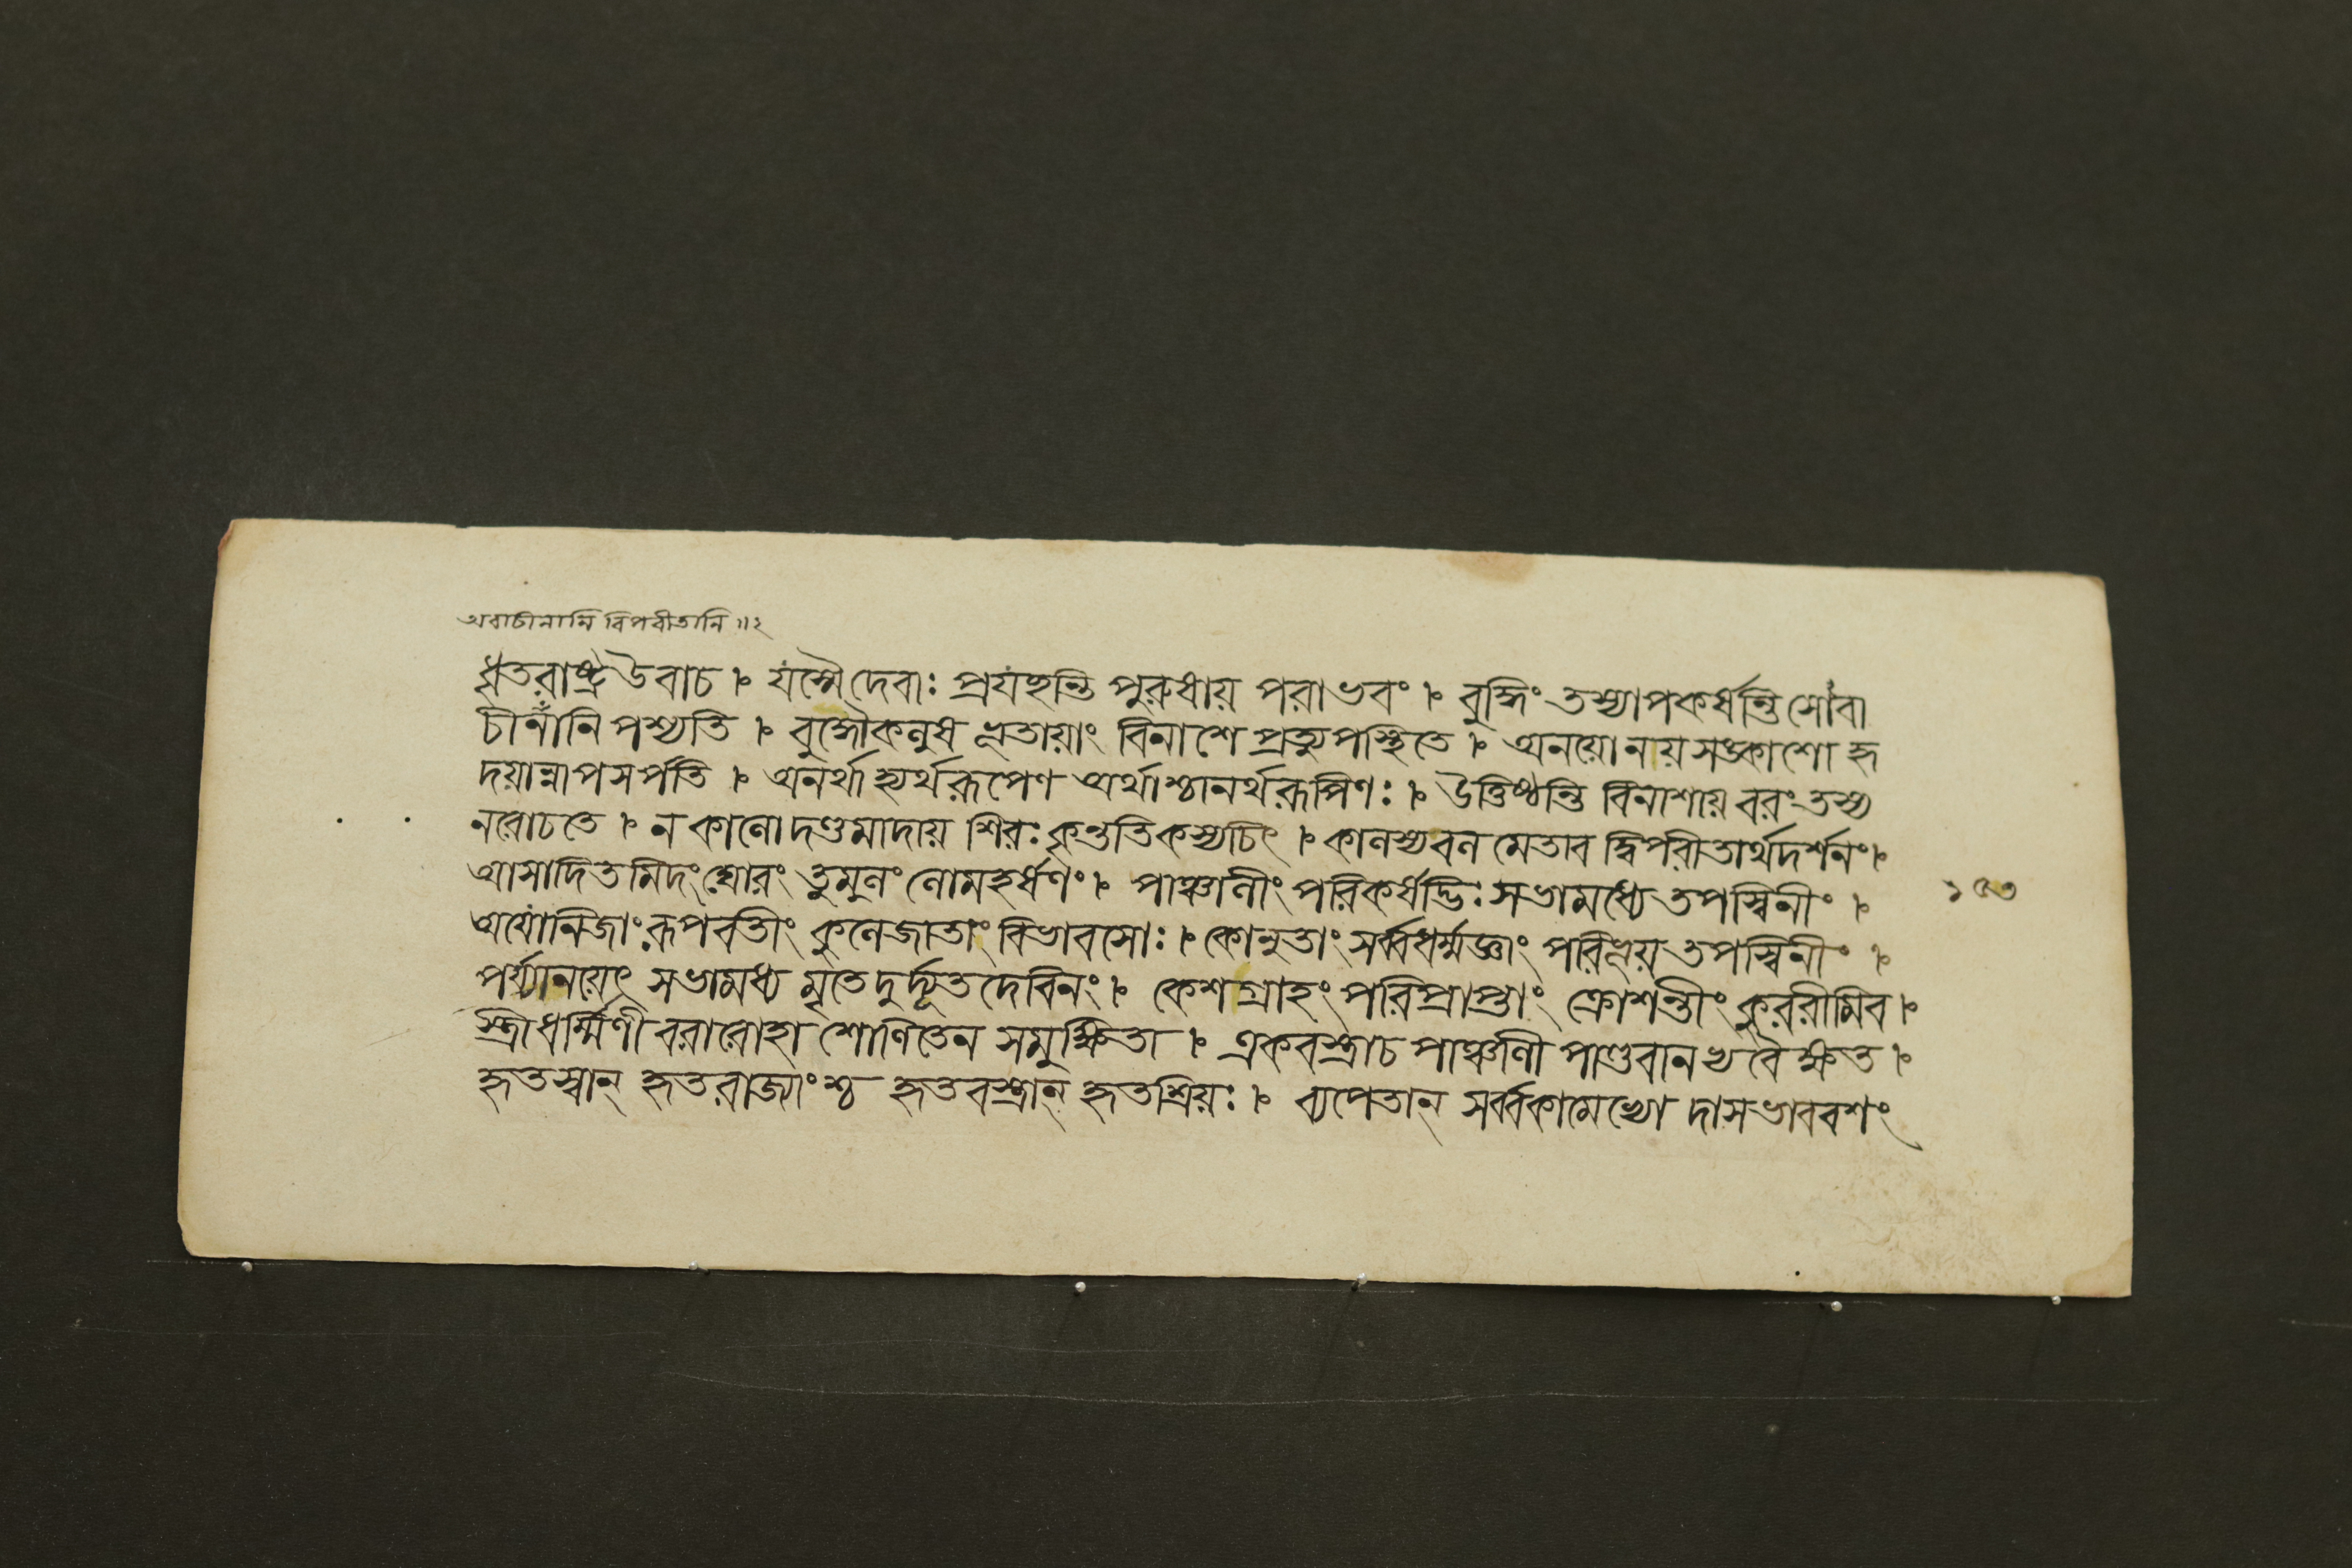 অবাচীনানি বিপরীতানি ॥২
ধৃতরাষ্ট্র উবাচ । যস্মৈ দেবাঃ প্রযচ্ছন্তি পুরুষায় পরাভবং । বুদ্ধিং তস্যাপকর্ষন্তি সোঽবা
চীনানি পশ্যতি । বুদ্ধৌ কলুষভূতায়াং বিনাশে প্রত্যুপস্থিতে । অনয়ো নয়সঙ্কাশো হৃ
দয়ান্নাপসর্পতি । অনর্থাশ্চার্থরূপেণ অর্থাশ্চানর্থরূপিণঃ । উত্তিষ্ঠন্তি বিনাশায় বরং তস্য
নরোচতে । ন কালো দণ্ডমাদায় শিরঃ কৃন্ততি কস্যচিৎ । কালস্য বলমেতাবদ্বিপরীতার্থদর্শনং ।
আসাদিতমিদং ঘোরং তুমুলং লোমহর্ষণং । পাঞ্চালীং পরিকর্ষদ্ভিঃ সভামধ্যে তপস্বিনীং ।
অযোনিজাং রূপবতীং কুলে জাতাং বিভাবসোঃ । কোনুতাং সর্ব্বধর্ম্মজ্ঞাং পরিভূয় তপস্বিনীং ।
পর্য্যানয়েৎ সভামধ্য মৃতে দুর্দ্যূতদেবিনং । কেশগ্রাহং পরিপ্রাপ্তাং ক্রোশন্তীং কুররীমিব ।
স্ত্রীধর্ম্মিণী বরারোহা শোণিতেন সমুক্ষিতা । একবস্ত্রাচ পাঞ্চালী পাণ্ডবানভ্যবৈক্ষত ।
হৃতস্বান্ হৃতরাজ্যাংশ্চ হৃতবস্ত্রান্ হৃতশ্রিয়ঃ । ব্যপেতান্ সর্ব্বকামেভ্যো দাসভাববশং
১৫৩